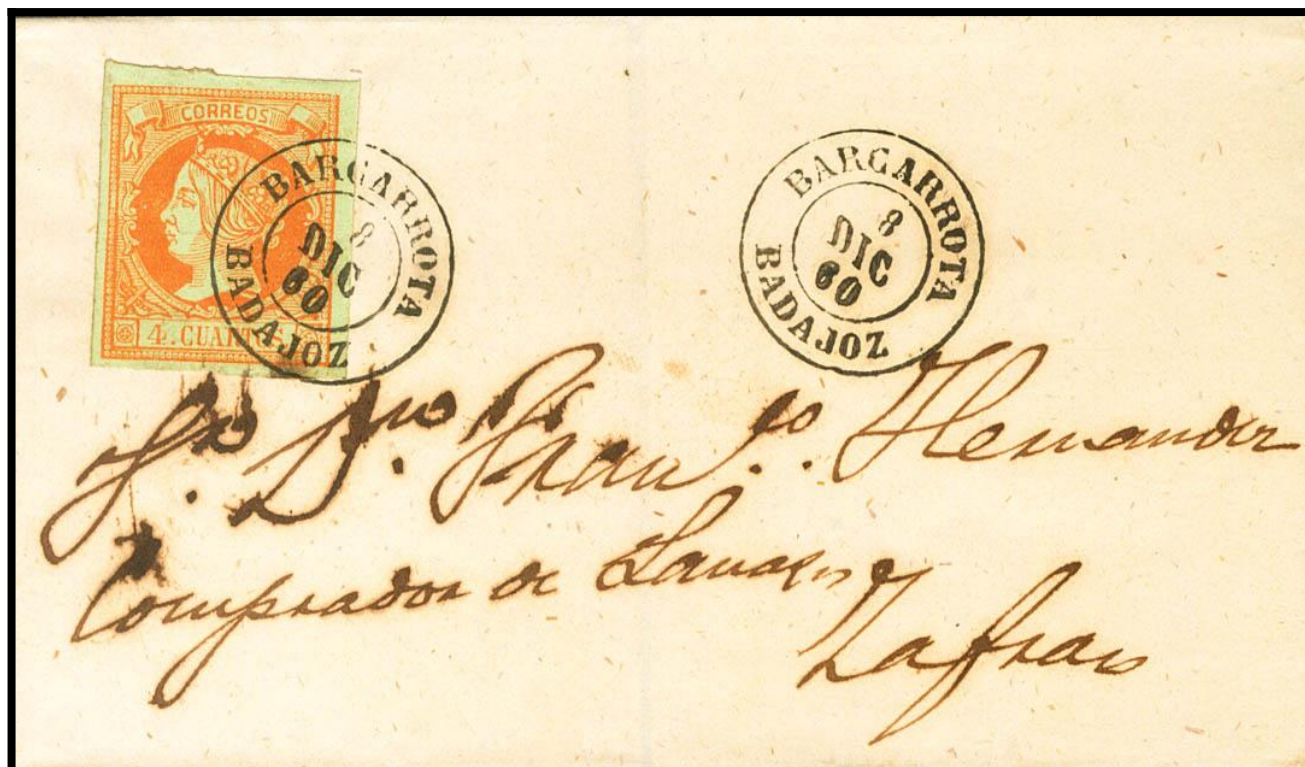 CORREOS
4. CUART
BARCARROTA
8
DIC
60
BADAJOZ
BARCARROTA
8
DIC
60
BADAJOZ
Sr. Dn. Franco. Hernandez
Comprador de Lanas
Zafra